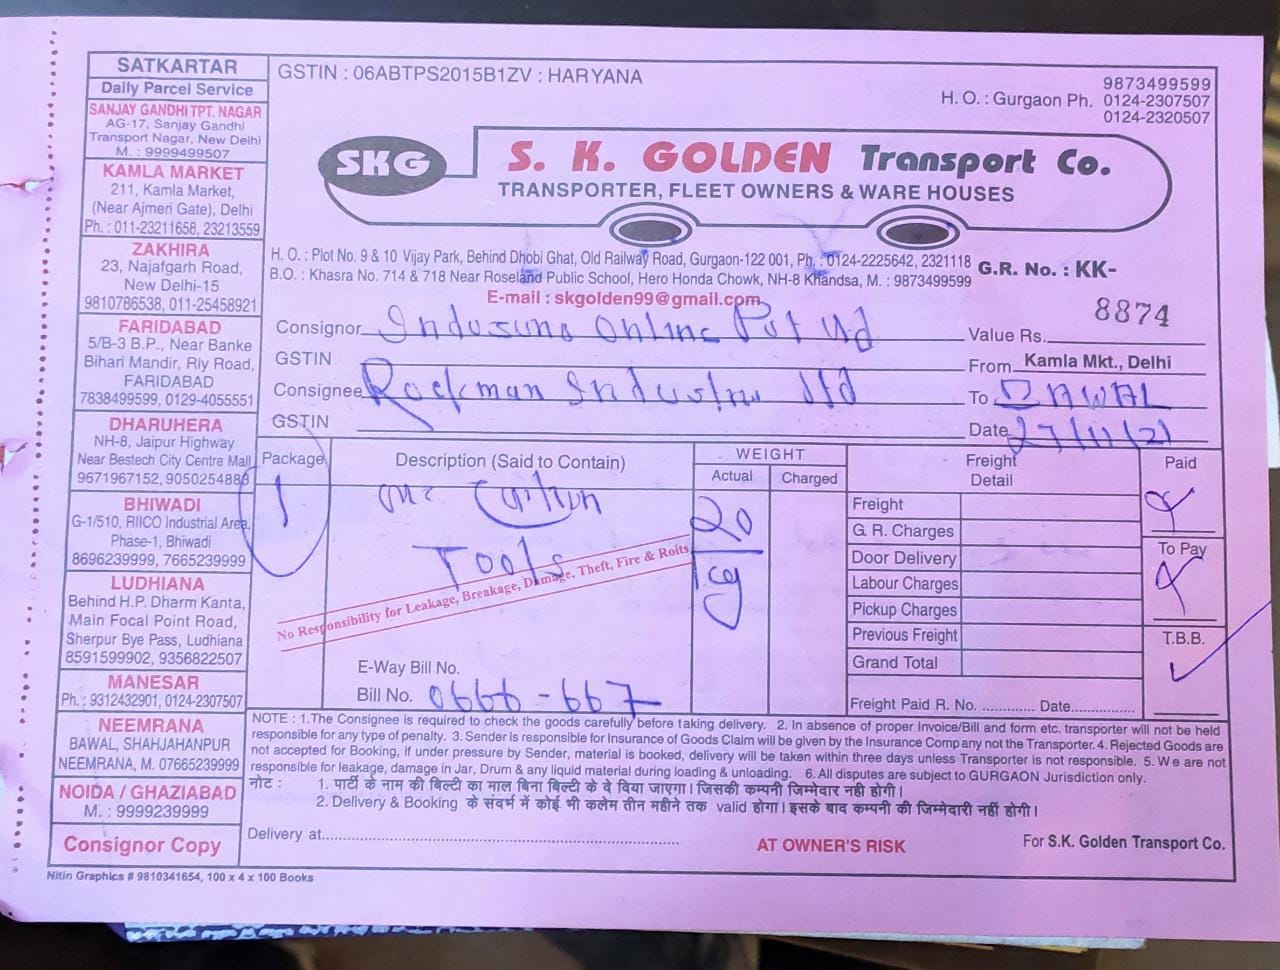 SATKARTAR
Daily Parcel Service
SANJAY GANDHI TPT. NAGAR
AG-17, Sanjay Gandhi
Transport Nagar, New Delhi
M. : 9999499507
KAMLA MARKET
211, Kamla Market,
(Near Ajmeri Gate), Delhi
Ph. : 011-23211658, 23213559
ZAKHIRA
23, Najafgarh Road,
New Delhi-15
9810786538, 011-25458921
FARIDABAD
5/B-3 B.P., Near Banke
Bihari Mandir, Rly Road,
FARIDABAD
7838499599, 0129-4055551
DHARUHERA
NH-8, Jaipur Highway
Near Bestech City Centre Mall
9671967152, 9050254888
BHIWADI
G-1/510, RIICO Industrial Area,
Phase-1, Bhiwadi
8696239999, 7665239999
LUDHIANA
Behind H.P. Dharm Kanta,
Main Focal Point Road,
Sherpur Bye Pass, Ludhiana
8591599902, 9356822507
MANESAR
Ph. : 9312432901, 0124-2307507
NEEMRANA
BAWAL, SHAHJAHANPUR
NEEMRANA, M. 07665239999
NOIDA / GHAZIABAD
M. : 9999239999
Consignor Copy
GSTIN : 06ABTPS2015B1ZV : HARYANA
9873499599
H. O. : Gurgaon Ph. 0124-2307507
0124-2320507
SKG
S. K. GOLDEN Transport Co.
TRANSPORTER, FLEET OWNERS & WARE HOUSES
H. O. : Plot No. 9 & 10 Vijay Park, Behind Dhobi Ghat, Old Railway Road, Gurgaon-122 001, Ph. : 0124-2225642, 2321118
B.O. : Khasra No. 714 & 718 Near Roseland Public School, Hero Honda Chowk, NH-8 Khandsa, M. : 9873499599
E-mail : skgolden99@gmail.com
G.R. No. : KK-
8874
Consignor Online Pvt Ltd
Value Rs.
GSTIN
From Kamla Mkt., Delhi
Consignee Rockman Industries ltd
To BAWAL
GSTIN
Date 27/11/21
Package
Description (Said to Contain)
WEIGHT
Actual
Charged
Freight
Detail
Paid
1
Carton
20
kg
Tools
Freight
G. R. Charges
Door Delivery
Labour Charges
Pickup Charges
Previous Freight
Grand Total
To Pay
T.B.B.
No Responsibility for Leakage, Breakage, Damage, Theft, Fire & Roits
E-Way Bill No.
Bill No. 0666-667
Freight Paid R. No. ............. Date...............
NOTE : 1.The Consignee is required to check the goods carefully before taking delivery. 2. In absence of proper Invoice/Bill and form etc. transporter will not be held
responsible for any type of penalty. 3. Sender is responsible for Insurance of Goods Claim will be given by the Insurance Company not the Transporter. 4. Rejected Goods are
not accepted for Booking, if under pressure by Sender, material is booked, delivery will be taken within three days unless Transporter is not responsible. 5. We are not
responsible for leakage, damage in Jar, Drum & any liquid material during loading & unloading. 6. All disputes are subject to GURGAON Jurisdiction only.
नोट : 1. पार्टी के नाम की बिल्टी का माल बिना बिल्टी के दे दिया जाएगा। जिसकी कम्पनी जिम्मेदार नही होगी।
2. Delivery & Booking के संदर्भ में कोई भी कलेम तीन महीने तक valid होगा। इसके बाद कम्पनी की जिम्मेदारी नहीं होगी।
Delivery at
AT OWNER'S RISK
For S.K. Golden Transport Co.
Nitin Graphics # 9810341654, 100 x 4 x 100 Books